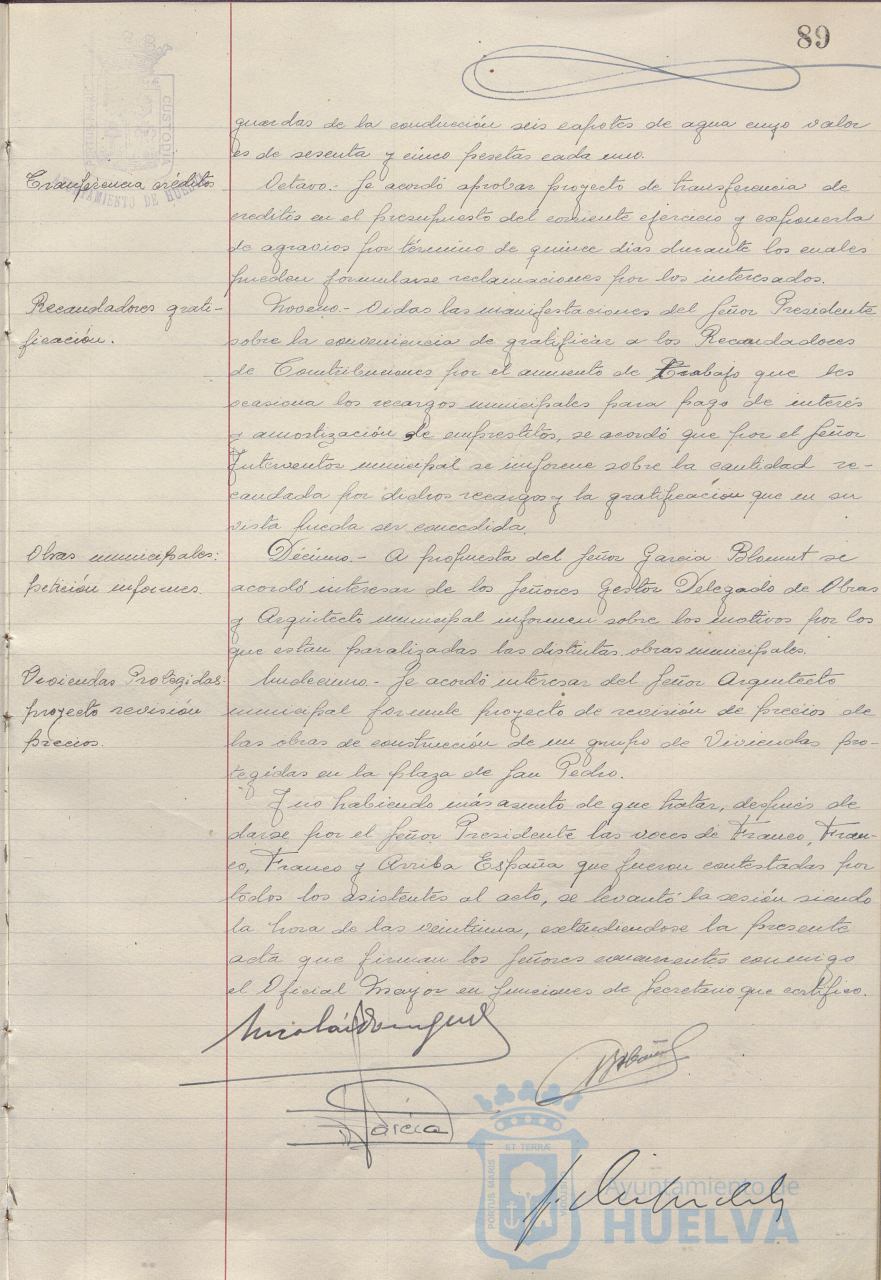 89
guardas de la conducción seis capotes de agua cuyo valor
es de sesenta y cinco pesetas cada uno.
Transferencia créditos
Octavo.- Se acordó aprobar proyecto de transferencia de
creditos en el presupuesto del corriente ejercicio y exponerla
de agravios por término de quince dias durante los cuales
pueden formularse reclamaciones por los interesados.
Recaudadores grati-
ficación.
Noveno.- Oidas las manifestaciones del Señor Presidente
sobre la conveniencia de gratificar a los Recaudadores
de Contribuciones por el aumento de trabajo que les
ocasiona los recargos municipales para pago de interés
y amortización de emprestitos, se acordó que por el Señor
Interventor municipal se informe sobre la cantidad re-
caudada por dichos recargos y la gratificación que en su
vista pueda ser concedida.
Obras municipales:
petición informes.
Décimo.- A propuesta del Señor Garcia Blomut se
acordó interesar de los Señores Gestor Delegado de Obras
y Arquitecto municipal informen sobre los motivos por los
que estan paralizadas las distintas obras municipales.
Viviendas Protegidas:
proyecto revisión
precios.
Undecimo.- Se acordó interesar del Señor Arquitecto
municipal formule proyecto de revisión de precios de
las obras de construcción de un grupo de Viviendas pro-
tegidas en la plaza de San Pedro.
Y no habiendo más asunto de que tratar, después de
darse por el Señor Presidente las voces de Franco, Fran-
co, Franco y Arriba España que fueron contestadas por
todos los asistentes al acto, se levantó la sesión siendo
la hora de las veintiuna, extendiendose la presente
acta que firman los Señores concurrentes conmigo
el Oficial Mayor en funciones de Secretario que certifico.
García
CUSTODIA
AYUNTAMIENTO DE HUELVA
PORTUS MARIS
ET TERRÆ
CUSTODIA
Ayuntamiento de
HUELVA